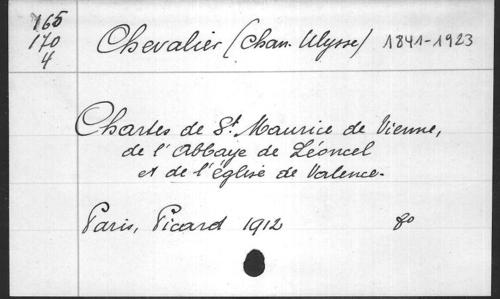 165
170
4
Chevalier (Chan. Ulysse) 1841-1923
Chartes de St. Maurice de Vienne,
de l'Abbaye de Léoncel
et de l'église de Valence.
Paris, Picard 1912 8o